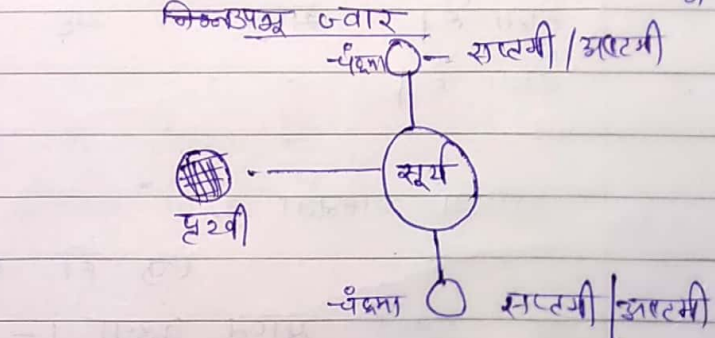 निम्नउपभू ज्वार
चंद्रमा सप्तमी / अष्टमी
सूर्य
पृथ्वी
चंद्रमा सप्तमी / अष्टमी